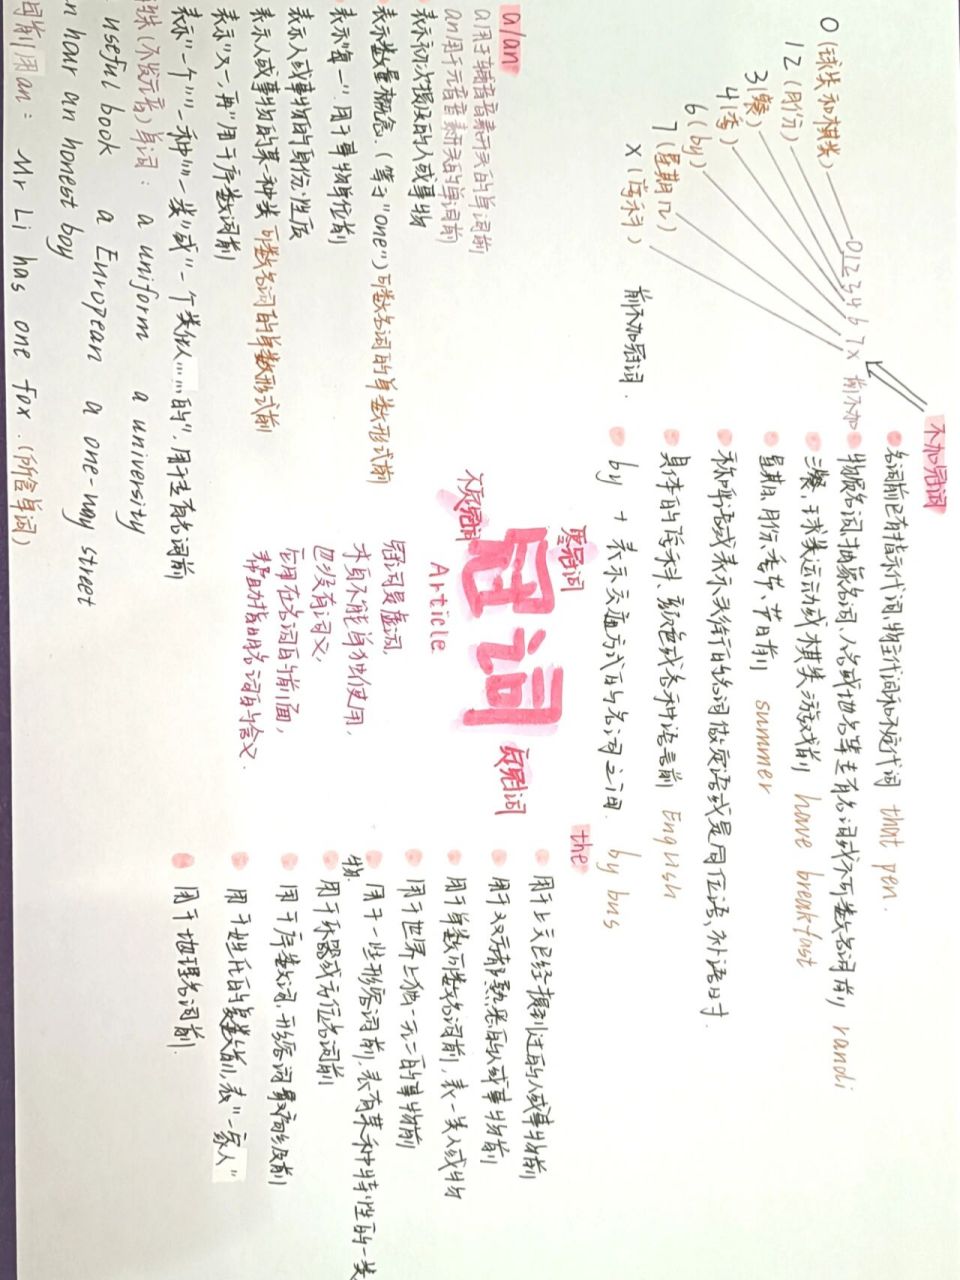 不加冠词
名词前已有指示代词,物主代词和不定代词 that pen.
物质名词,抽象名词、人名或地名等专有名词或不可数名词前
三餐、球类运动或棋类游戏前 have breakfast
星期、月份、季节、节日前 summer
称呼语或表示头衔的名词做表语或是同位语,补语时.
具体的学科、颜色或各种语言前 English
by + 表示交通方式的名词之间. by bus
0 (球类和棋类)
12 (月份)
31餐)
41季)
6 (by)
7 (星期几)
X (学科)
前不加冠词.
012346.7X 前不加
a/an
a用于辅音音素开头的单词前
an用于元音音素开头的单词前
表示初次提及的人或事物
表示数量概念.(等于"one")可数名词的单数形式前
表示"每一".用于事物单位前
表示人或事物的身份.性质
表示人或事物的某一种类 可数名词的单数形式前
表示"又一,再"用于序数词前
表示"一个""一种""一类"或"一个类似……的".用于专有名词前
(不发元音)单词: a uniform a university
useful book a European a one-way street
hour an honest boy
前用an: Mr Li has one fox.(所含单词)
不定冠词
零冠词
冠词
定冠词
Article
冠词是虚词,
本身不能单独使用,
也没有词义,
应用在名词的前面,
帮助指明名词的含义.
the
用于上文已经提到过的人或事物前
用于双方都熟悉的人或事物前
用于单数可数名词前,表一类人或物
用于世界上独一无二的事物前
用于一些形容词前,表有某种特性的一类
物.
用于乐器或方位名词前
用于序数词,形容词最高级前
用于姓氏的复数前,表"一家人"
用于地理名词前.